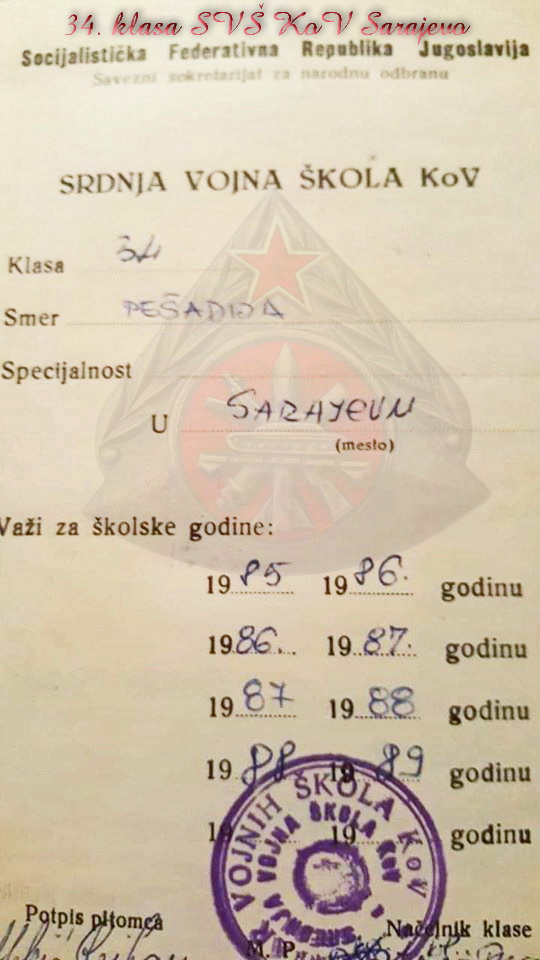 34. klasa SVŠ KoV Sarajevo
Socijalistička Federativna Republika Jugoslavija
Savezni sekretarijat za narodnu odbranu
SRDNJA VOJNA ŠKOLA KoV
Klasa 34
Smer PEŠADIJA
Specijalnost
U SARAJEVU
(mesto)
Važi za školske godine:
1985 1986. godinu
1986. 1987. godinu
1987 1988 godinu
1988 1989 godinu
19 19 godinu
VOJNIH ŠKOLA KoV
SREDNJA VOJNA ŠKOLA KoV
Potpis pitomca
M. P.
Načelnik klase